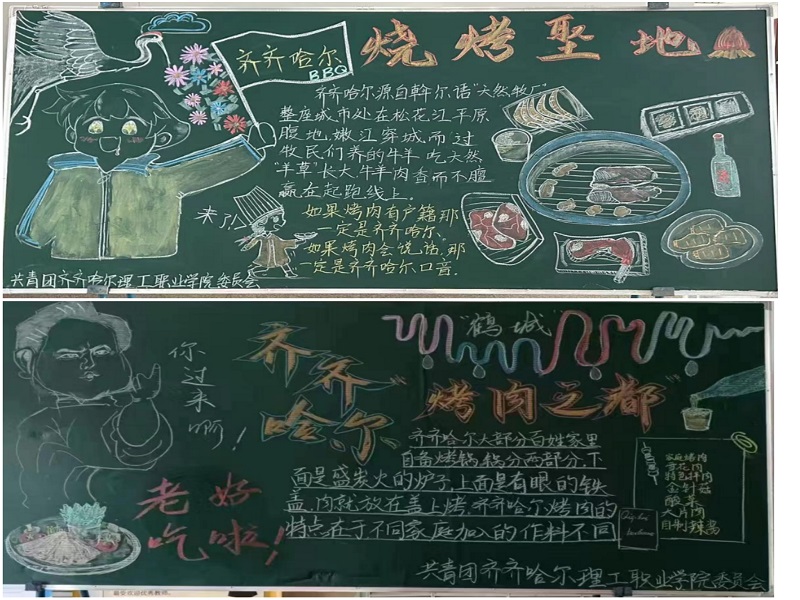 齐齐哈尔
BBQ
烧烤圣地
齐齐哈尔源自达斡尔语“天然牧厂”
整座城市处在松花江平原
腹地，嫩江穿城而过
牧民们养的牛羊吃天然
“羊草”长大，牛羊肉香而不膻
赢在起跑线上.
来了!
如果烤肉有户籍那
一定是齐齐哈尔.
如果烤肉会说话，那
一定是齐齐哈尔口音.
共青团齐齐哈尔理工职业学院委员会
你过来啊!
齐齐
哈尔
“鹤城”
“烤肉之都”
老好
吃啦!
齐齐哈尔大部分百姓家里
自备烤锅，锅分两部分，下
面是盛炭火的炉子，上面是有眼的铁
盖，肉就放在盖上烤.齐齐哈尔烤肉的
特点在于不同家庭加入的作料不同
家庭烤肉
雪花肉
特色拌肉
金针菇
酸菜
大片肉
自制辣酱
共青团齐齐哈尔理工职业学院委员会